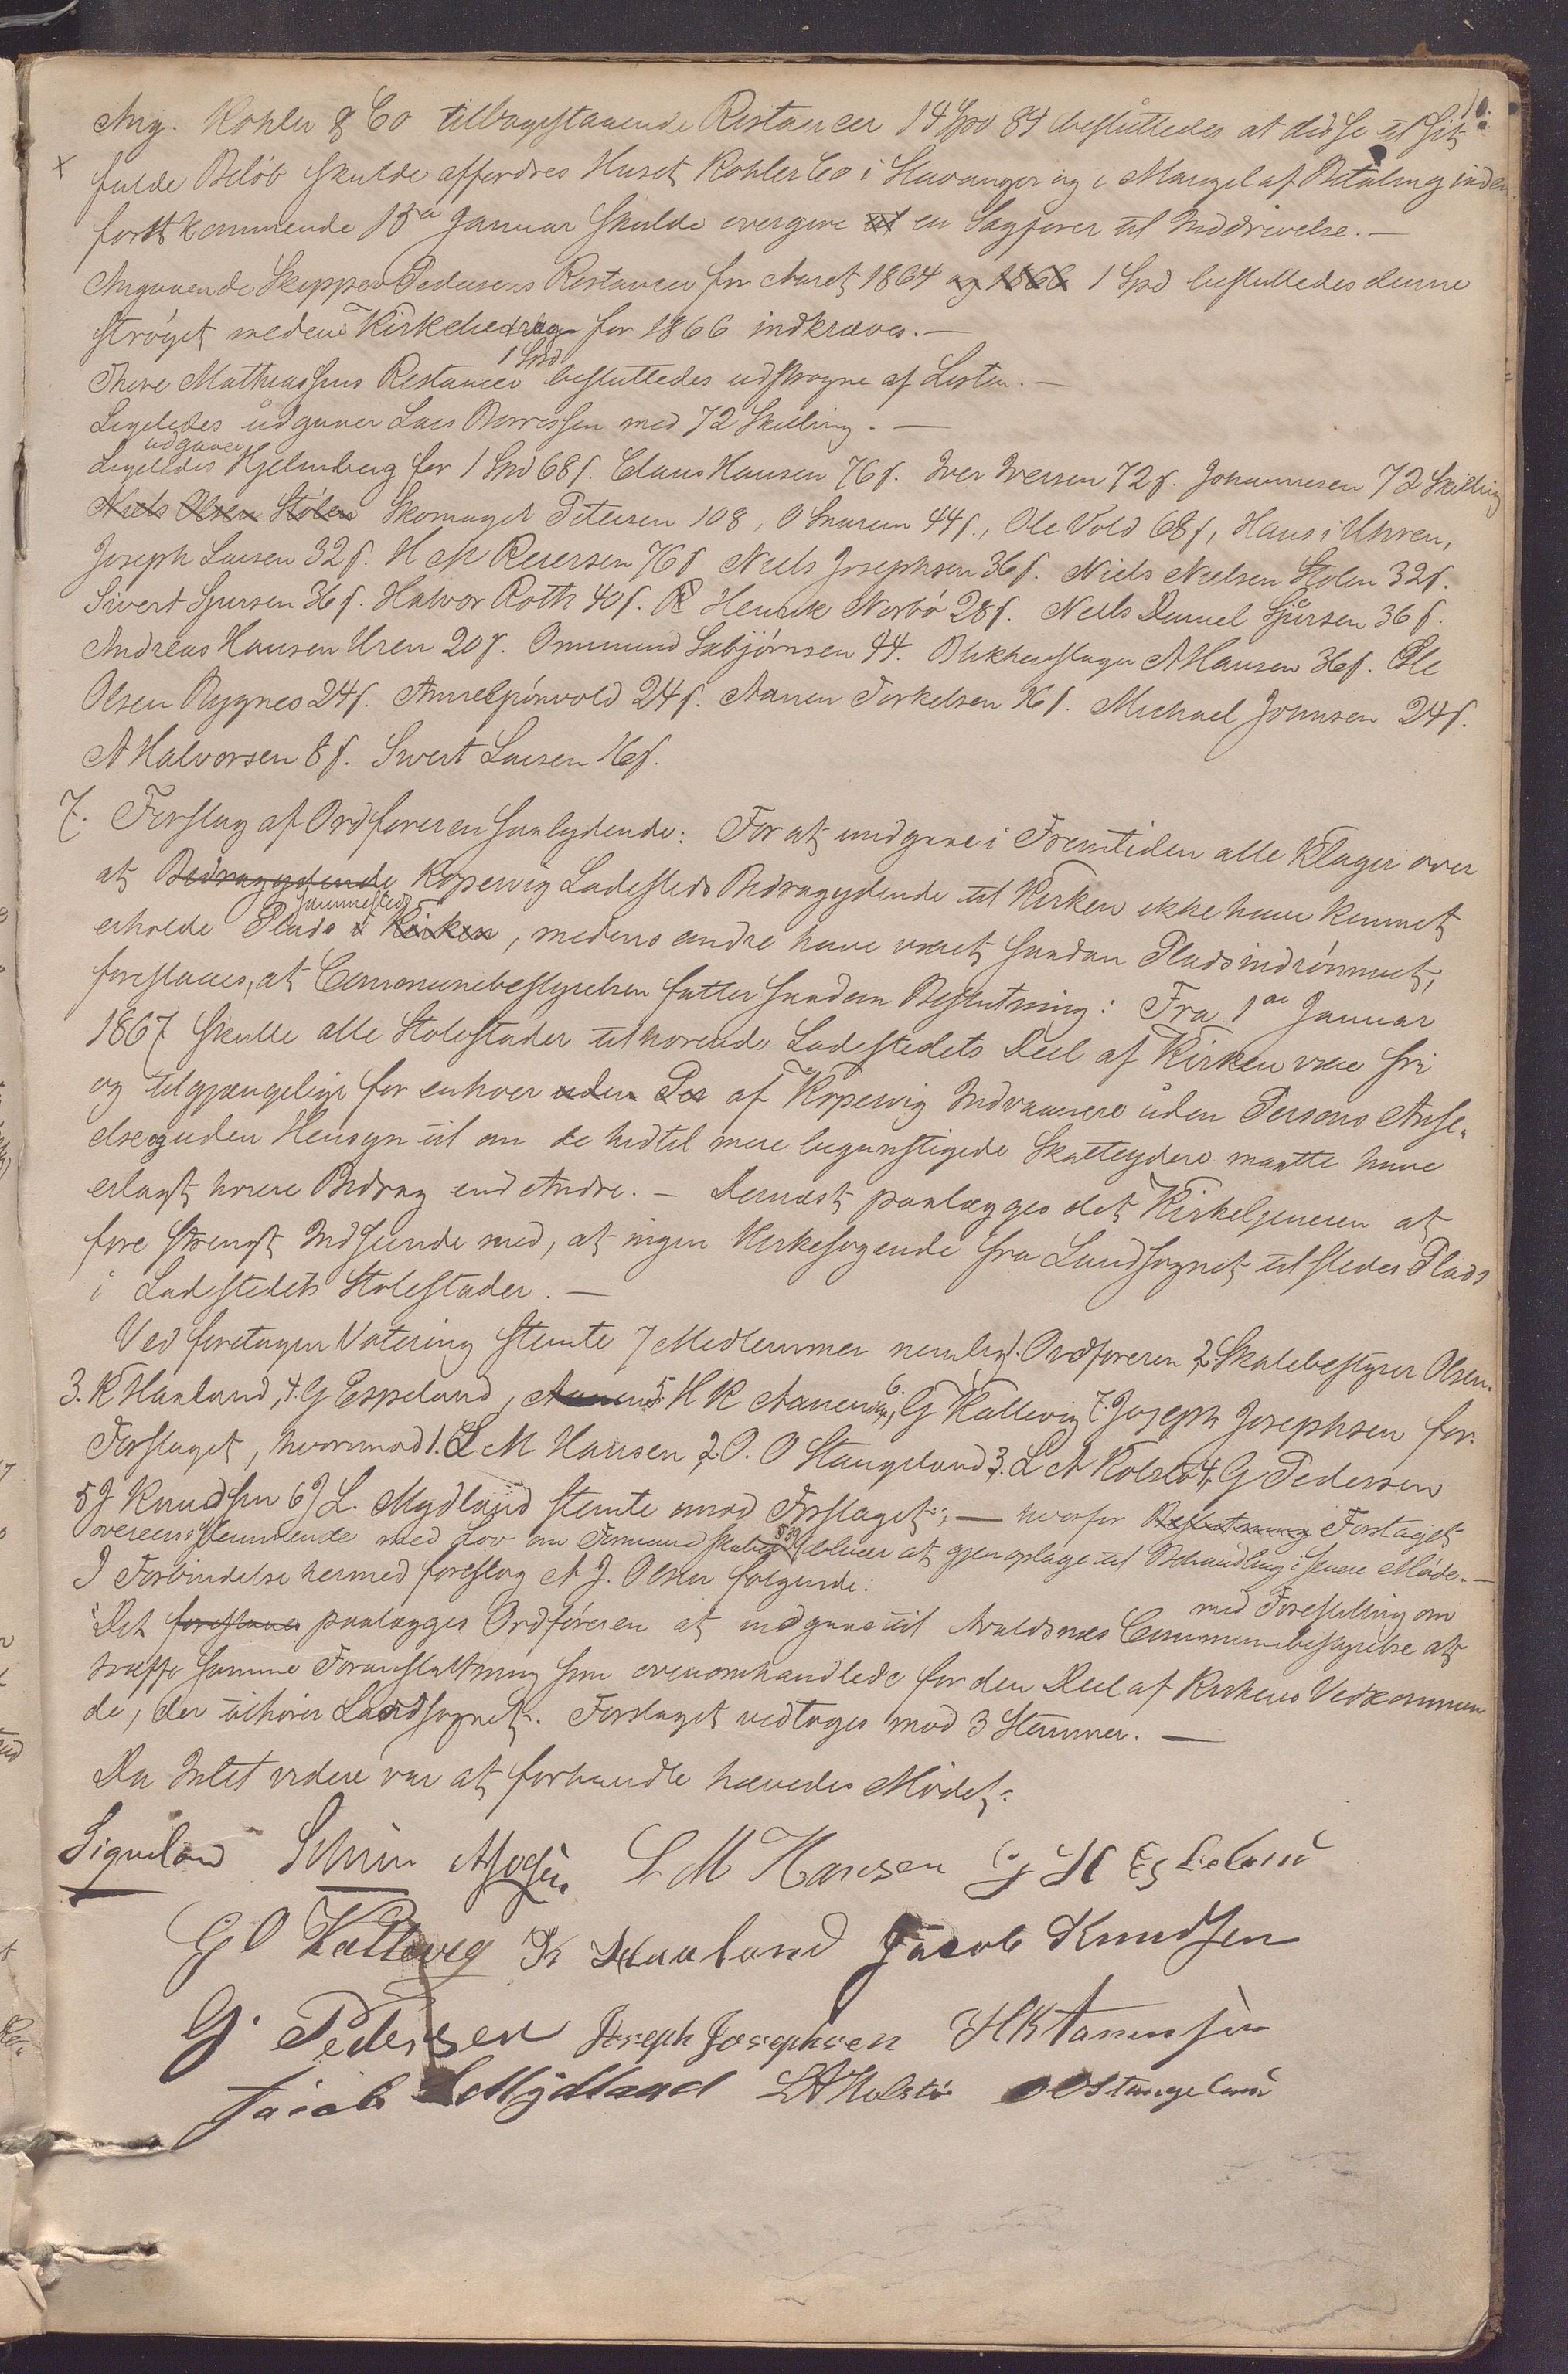 10.
Ang. Kohler & Co tilbagestaaende Restancer 14 Spd 84 besluttedes at disse til sit
x fulde Beløb skulde affordres Huset Kohler Co i Stavanger og i Mangel af Betaling inden
førstkommende 15de Januar skulde overgive til en Sagfører til Inddrivelse. —
Angaaende Skipper Pedersens Restancer for Aaret 1864 og 1866 1 Spd besluttedes denne
strøget medens Kirkebidrag for 1866 indkræves. —
1 Spd
Thore Mathiassens Restancer besluttedes udstrøgne af Listen. —
Ligeledes udgaaer Lars Børresen med 72 Skilling. —
udgaaer
Ligeledes Hjelmberg for 1 Spd 68 s. Claus Hansen 76 s. Iver Iversen 72 s. Johannesen 72 Skilling
Niels Olsen Stølen Skomager Petersen 108, O Snarem 44 s., Ole Vold 68 s, Hans i Uhren,
Joseph Larsen 32 s. H M Reiersen 76 s Niels Josephsen 36 s. Niels Nielsen Stolen 32 s.
Sivert Sjursen 36 s. Halvor Roth 40 s. R Henrik Norbø 28 s. Niels Daniel Sjursen 36 s.
Andreas Hansen Uren 20 s. Ommund Sæbjørnsen 44. Blikkenslager A Hansen 36 s. Ole
Olsen Bygnes 24 s. Anne Spönvold 24 s. Aanen Torkelsen 16 s. Michael Johnsen 24 s.
A Halvorsen 8 s. Sivert Larsen 16 s.
7. Forslag af Ordføreren saalydende: For at undgaae i Fremtiden alle Klager over
at Bidragydende Kopervig Ladesteds Bidragydende til Kirken ikke have kunnet
sammesteds
erholde Plads i Kirken, medens andre have været saadan Plads indrømmet,
foreslaaes, at Communebestyrelsen fatter saadan Beslutning: Fra 1ste Januar
1867 skulle alle Stolestader tilhørende Ladestedets Deel af Kirken være fri
og tilgjængelige for enhver uden Per af Kopervig Indvaanere uden Persons Anse-
else og uden Hensyn til om de hidtil mere begunstigede Skatteydere maatte have
erlagt høiere Bidrag end Andre. — Dernæst paalægges det Kirketjeneren at
føre strengt Indseende med, at ingen Kirkesøgende fra Landsognet tilstedes Plads
i Ladestedets Stolestader. —
Ved foretagen Votering stemte 7 Medlemmer nemlig 1. Ordføreren 2. Skolebestyrer Olsen.
3. K Haaland, 4. G Espeland, Aanen 5. H K Aanensen, 6. G Kallevig 7. Joseph Josephsen for
Forslaget, hvorimod 1. L M Hansen 2. O. O Stangeland 3. L A Kolstø 4. G Pedersen
5 J Knudsen 6 J L. Mydland stemte imod Forslaget; — hvorfor Beslutning Forslaget
overeensstemmende med Lov om Formandskaber § 39 bliver at gjenoptage til Behandling i senere Møde. —
I Forbindelse hermed foreslog A J. Olsen følgende:
med Forestilling om
"Det foreslaaes paalægges Ordføreren at indgaae til Avaldsnæs Communebestyrelse at
træffe samme Foranstaltning som ovenomhandlede for den Deel af Kirkens Vedkommen
de, der tilhører Landsognet. Forslaget vedtoges mod 3 Stemmer. —
Da Intet videre var at forhandle hævedes Mødet.
L M Hansen G H Espeland
G O Kallevig K Haaland Jacob Knudsen
G. Pedersen Joseph Josephsen H K Aanensen
Jacob L Mydland L A Kolstø O O Stangeland